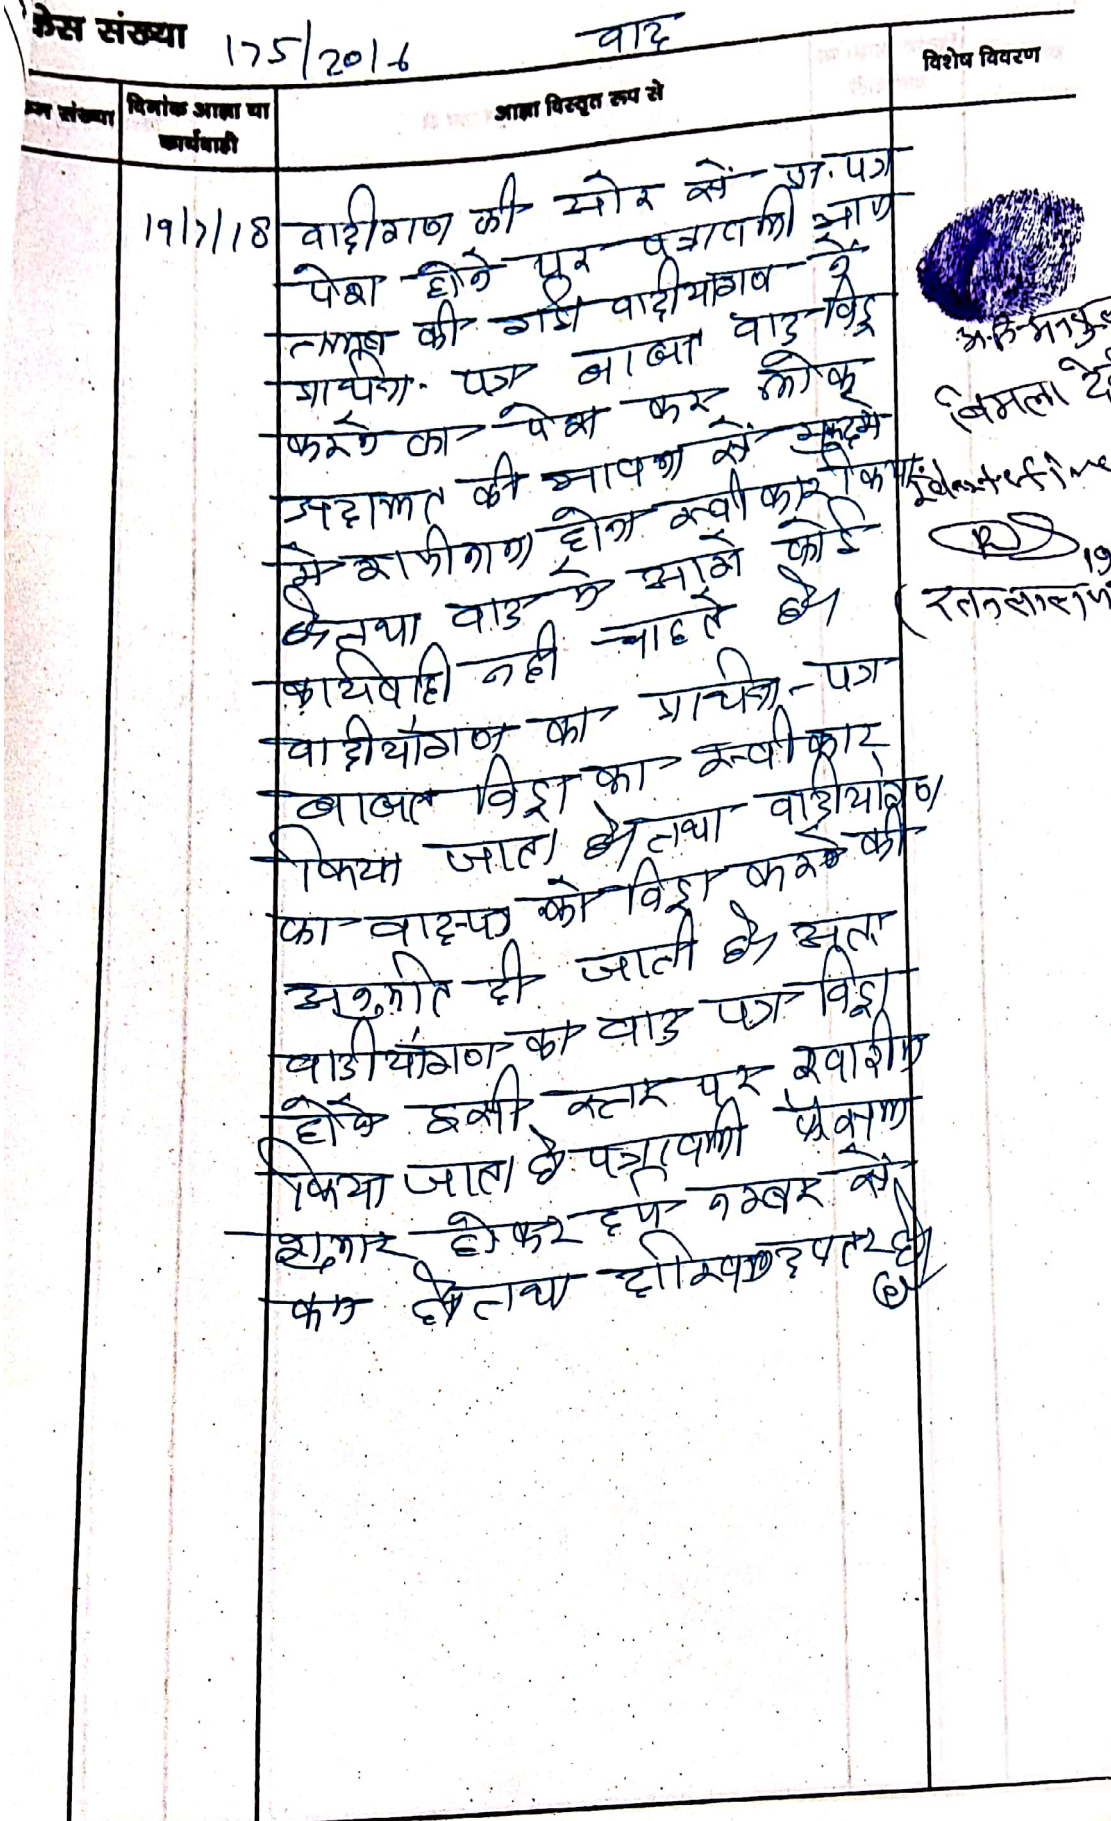 केस संख्या 175/2016 वाद
विशेष विवरण
संख्या दिनांक आज्ञा या कार्यवाही आज्ञा विस्तृत रूप से
19/7/18 वादीगण की ओर से प्रा. पत्र
पेश होने पर पत्रावली आज
तलब की गई वादीयोगण ने
प्रार्थना पत्र बाबत वाद विड्रा
करने का पेश कर लोक
अदालत की भावना से मुकदमे
मे राजीनामा होना स्वीकार किया
है तथा वाद मे आगे कोई
कार्यवाही नही चाहते है।
वादीयोगण का प्रार्थना-पत्र
बाबत विड्रा का स्वीकार
किया जाता है तथा वादीयोगण
का वाद-पत्र को विड्रा करने की
अनुमति दी जाती है अतः
वादीयोगण का वाद पत्र विड्रा
होने इसी स्तर पर खारीज
किया जाता है पत्रावली फैसल
शुमार होकर दर्ज नम्बर से
कम हो तथा दाखिल दफ्तर हो।
विमला देवी
19